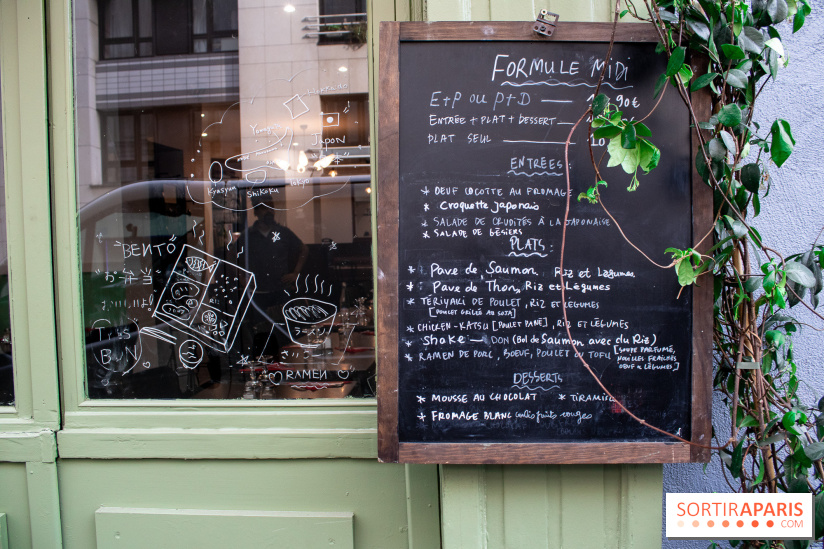 Hokkaido
Japon
Kyusyu
Shikoku
Tokyo
"BENTO"
RAMEN
ラーメン
FORMULE MIDI
E+P OU P+D 90€
ENTRÉE + PLAT + DESSERT
PLAT SEUL 10
ENTRÉES :
* OEUF COCOTTE AU FROMAGE
* Croquette Japonais
* SALADE DE CRUDITÉS À LA JAPONAISE
* SALADE DE GÉSIERS
PLATS :
* Pave de Saumon, Riz et Legumes
* Pave de Thon, Riz et Légumes
* TERIYAKI DE POULET, RIZ et LÉGUMES
[POULET GRILLÉ AU SOJA]
* CHICKEN-KATSU [POULET PANÉ], RIZ et LÉGUMES
* Shake — DON (Bol de Saumon avec du Riz)
* RAMEN DE PORC, BOEUF, POULET OU TOFU [SOUPE PARFUMÉE, NOUILLES FRAÎCHES OEUF & LÉGUMES]
DESSERTS
* MOUSSE AU CHOCOLAT * TIRAMISU
* FROMAGE BLANC coulis fruits rouges
SORTIRAPARIS
.COM